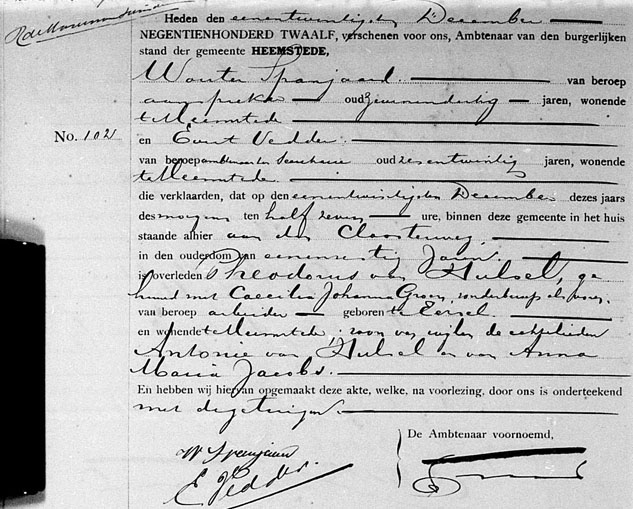 Heden den eenentwintigsten December
NEGENTIENHONDERD TWAALF, verschenen voor ons, Ambtenaar van den burgerlijken
stand der gemeente HEEMSTEDE,
Wouter Spanjaard van beroep
aanspreker oud jaren, wonende
te Heemstede
No. 102 en Evert Vedder
van beroep ambtenaar ter Secretarie oud zesentwintig jaren, wonende
te Heemstede
die verklaarden, dat op den eenentwintigsten December dezes jaars
des morgens ten half zeven ure, binnen deze gemeente in het huis
staande alhier aan den
in den ouderdom van eenenzestig Jaren
is overleden Theodorus van Hulsel, ge
huwd met Caecilia Johanna Groen, zonder beroep als voren,
van beroep arbeider geboren te Eersel
en wonende te Heemstede, zoon van wijlen de echtelieden
Antonie van Hulsel en van Anna
Maria Jacobs.
En hebben wij hiervan opgemaakt deze akte, welke, na voorlezing, door ons is onderteekend
met de getuigen.
De Ambtenaar voornoemd,
W Spanjaard
E Vedder.